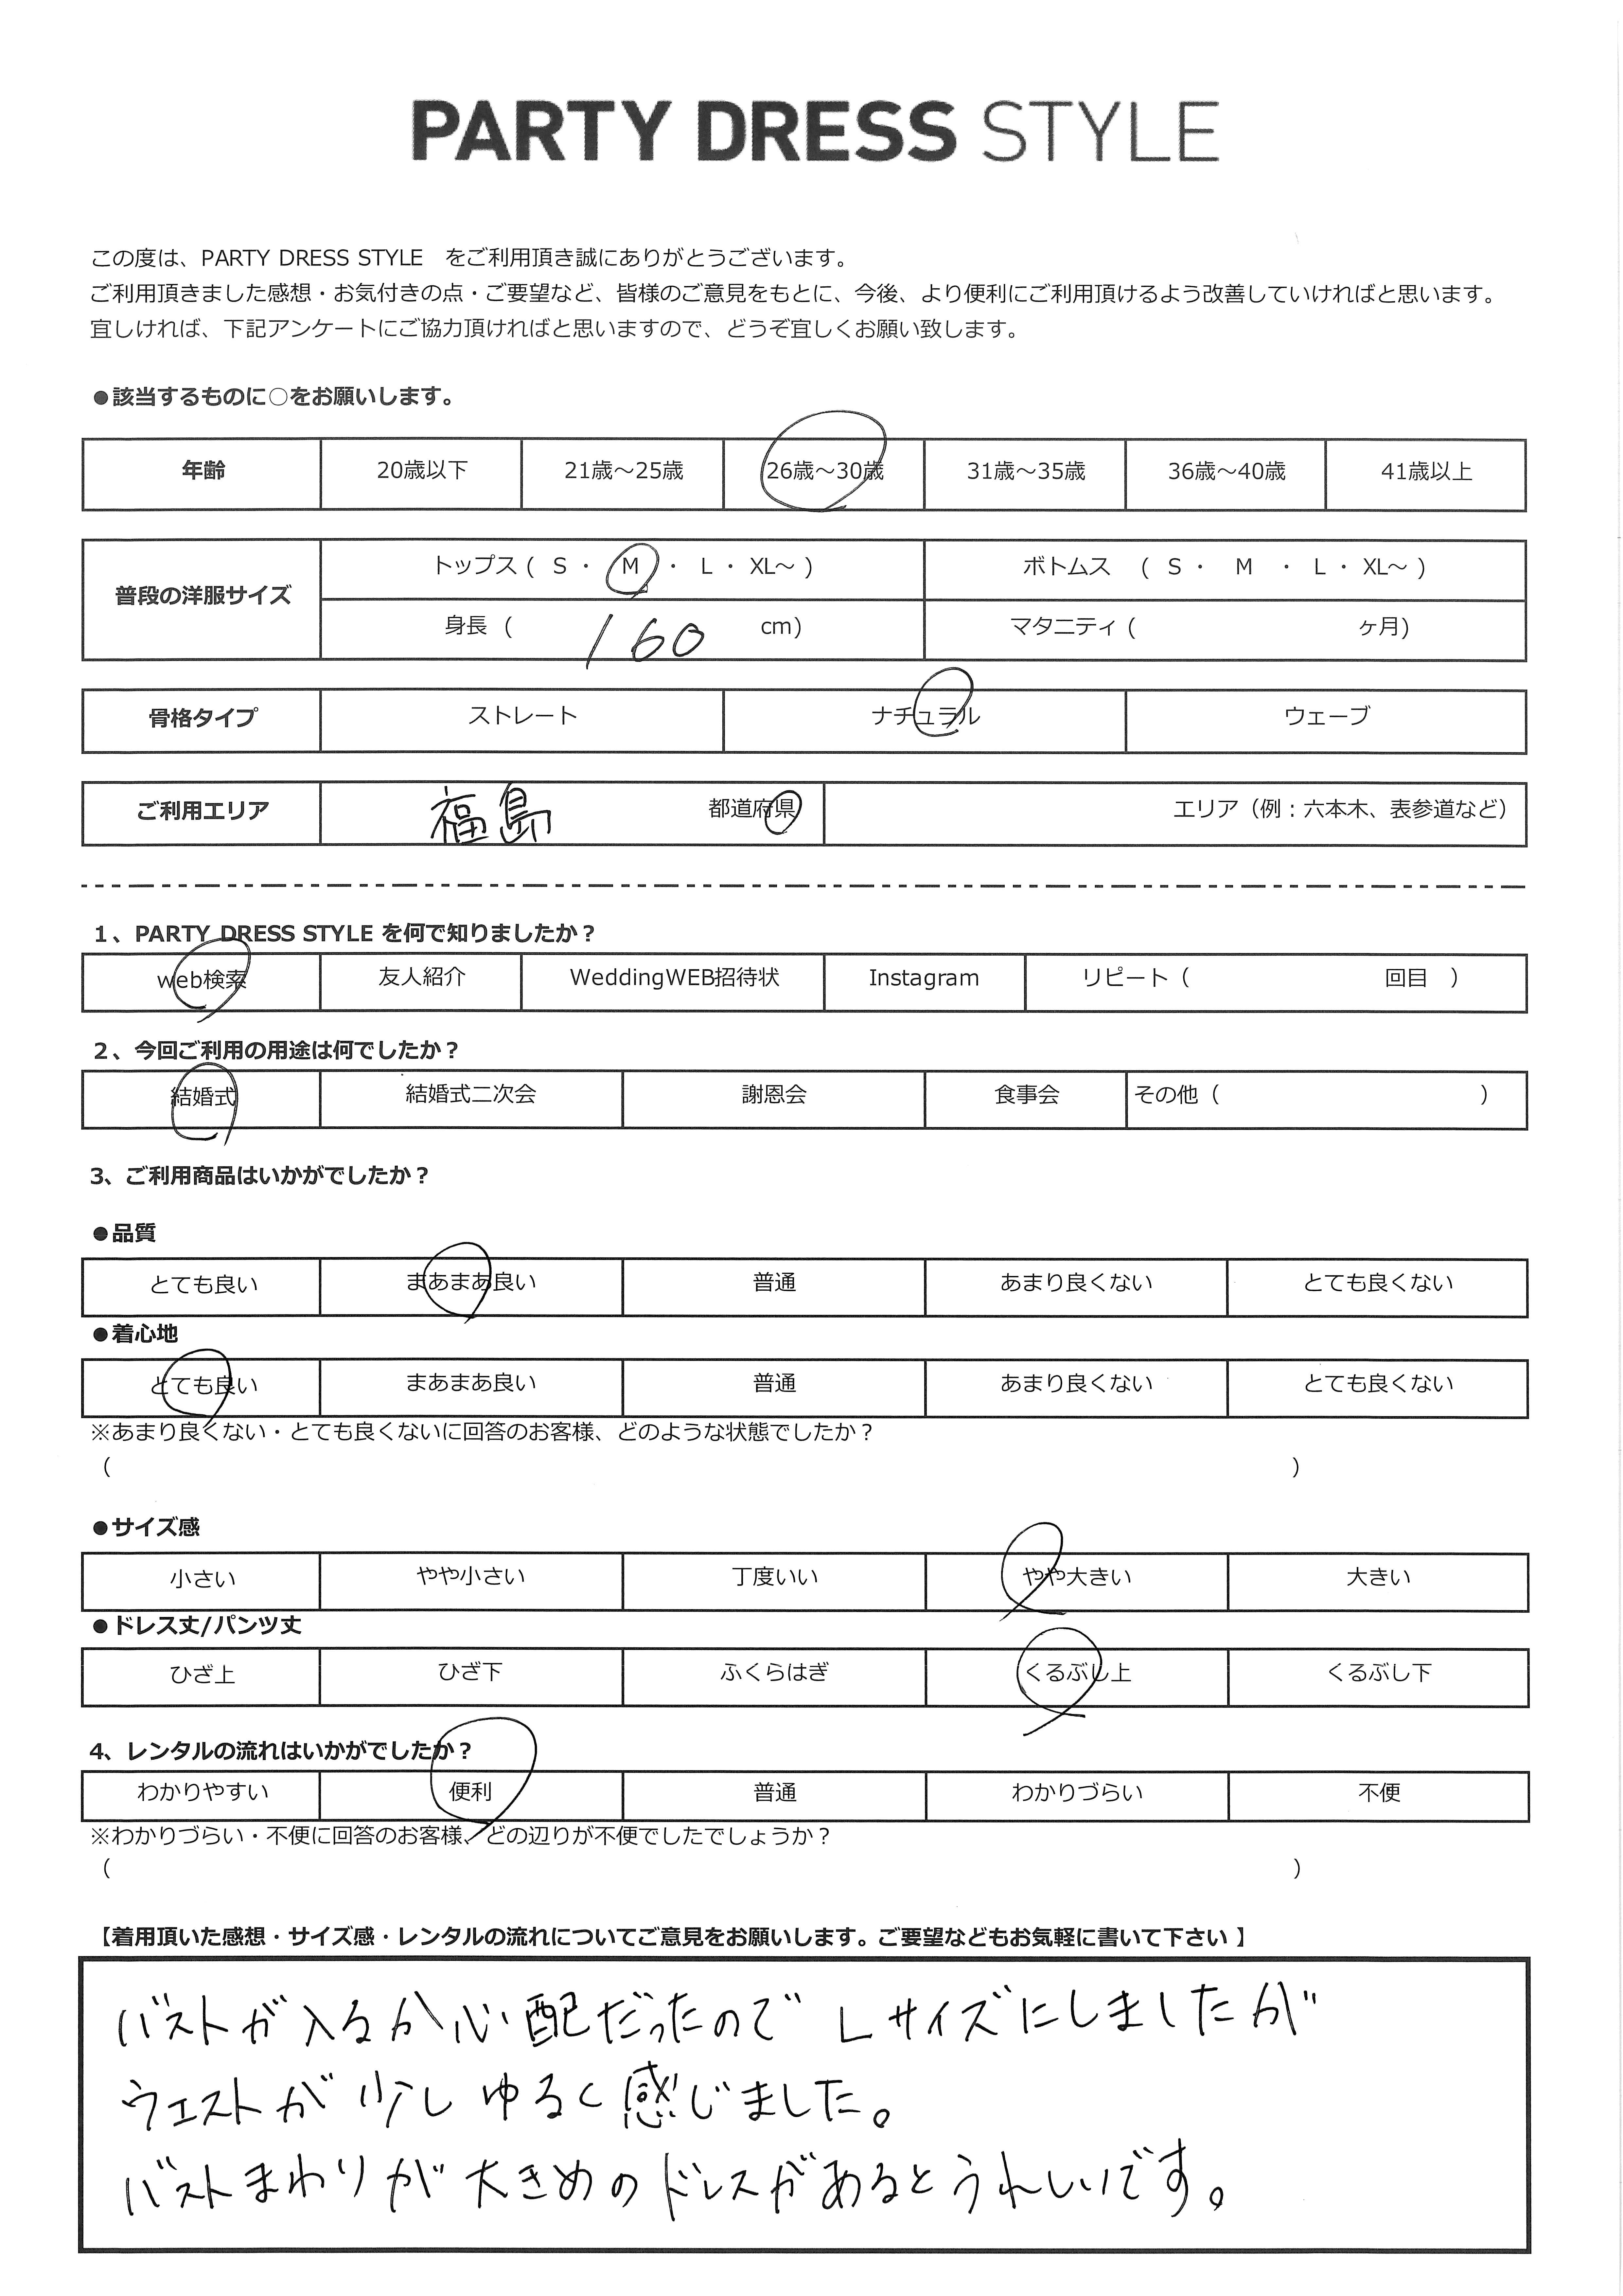 PARTY DRESS STYLE
この度は、PARTY DRESS STYLE をご利用頂き誠にありがとうございます。
ご利用頂きました感想・お気付きの点・ご要望など、皆様のご意見をもとに、今後、より便利にご利用頂けるよう改善していければと思います。
宜しければ、下記アンケートにご協力頂ければと思いますので、どうぞ宜しくお願い致します。
●該当するものに○をお願いします。
年齢 20歳以下 21歳～25歳 26歳～30歳 31歳～35歳 36歳～40歳 41歳以上
普段の洋服サイズ トップス ( S ・ M ・ L ・ XL～ ) ボトムス ( S ・ M ・ L ・ XL～ )
身長 ( 160 cm) マタニティ ( ヶ月)
骨格タイプ ストレート ナチュラル ウェーブ
ご利用エリア 福島 都道府県 エリア（例：六本木、表参道など）
1、PARTY DRESS STYLE を何で知りましたか？
web検索 友人紹介 WeddingWEB招待状 Instagram リピート（ 回目 ）
2、今回ご利用の用途は何でしたか？
結婚式 結婚式二次会 謝恩会 食事会 その他（ ）
3、ご利用商品はいかがでしたか？
●品質
とても良い まあまあ良い 普通 あまり良くない とても良くない
●着心地
とても良い まあまあ良い 普通 あまり良くない とても良くない
※あまり良くない・とても良くないに回答のお客様、どのような状態でしたか？
（ ）
●サイズ感
小さい やや小さい 丁度いい やや大きい 大きい
●ドレス丈/パンツ丈
ひざ上 ひざ下 ふくらはぎ くるぶし上 くるぶし下
4、レンタルの流れはいかがでしたか？
わかりやすい 便利 普通 わかりづらい 不便
※わかりづらい・不便に回答のお客様、どの辺りが不便でしたでしょうか？
（ ）
【着用頂いた感想・サイズ感・レンタルの流れについてご意見をお願いします。ご要望などもお気軽に書いて下さい 】
バストが入るか心配だったので Lサイズにしましたが
ウエストが少しゆるく感じました。
バストまわりが大きめのドレスがあるとうれしいです。